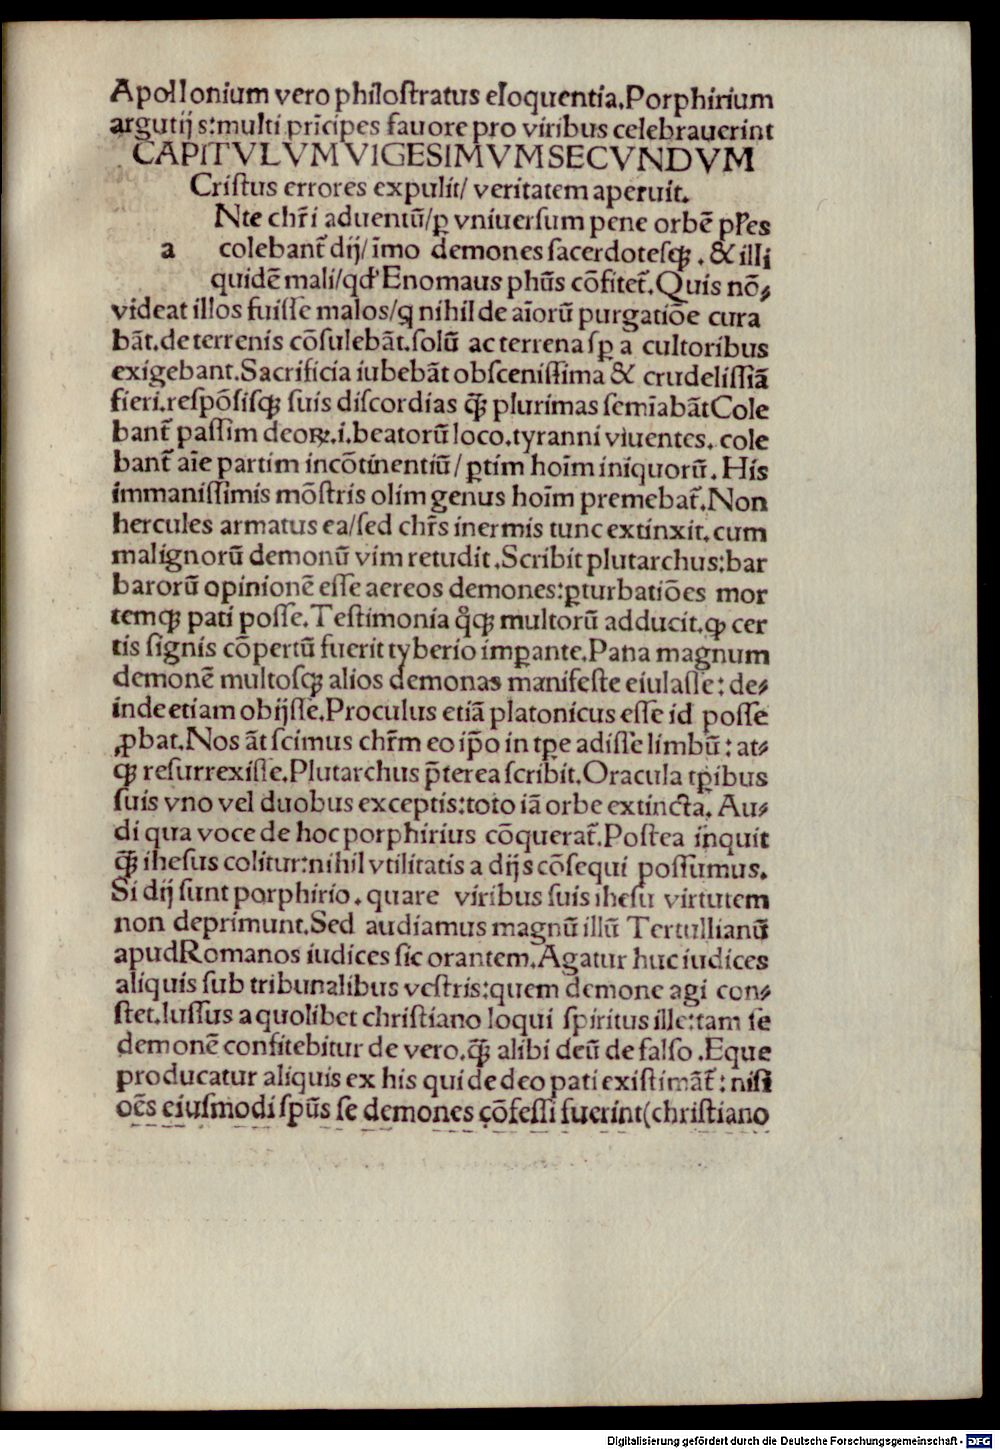 Apollonium vero philoſtratus eloquentia.Porphirium
argutijs:multi prīcipes favore pro viribus celebrauerint
CAPITVLVM VIGESIMVM SECVNDVM
Criſtus errores expulit/ veritatem aperuit.
Nte chr̄i aduentū/ꝑ vniuerſum pene orbē pl̄es
a colebant̄ dij/ īmo demones ſacerdoteſqꝫ . & illi
quidē mali/qđ Enomaus phūs cōfitet̄.Quis nō⸗
videat illos fuiſſe malos/ꝙ nihil de aīorū purgatiōe cura
bāt.de terrenis cōſulebāt.ſolū ac terrena ſꝑ a cultoribus
exigebant.Sacrificia iubebāt obſceniſſima & crudeliſſiā
fieri.reſpōſiſqꝫ ſuis diſcordias qꝫ̄ plurimas ſemīabāt Cole
bant̄ paſſim deoꝝ.i.beatorū loco.tyranni viuentes. cole
bant̄ aīe partim incōtinentiū/ ꝑtim hoīm iniquorū. His
immaniſſimis mōſtris olim genus hoīm premebat̄.Non
hercules armatus ea/ſed chr̄s inermis tunc extinxit.cum
malignorū demonū vim retudit.Scribit plutarchus:bar
barorū opinionē eſſe aereos demones:ꝑturbatiōes mor
temqꝫ pati poſſe.Teſtimonia qͦqꝫ multorū adducit.ꝙ cer
tis ſignis cōpertū fuerit tyberio imꝑante.Pana magnum
demonē multoſqꝫ alios demonas manifeſte eiulaſſe: de⸗
inde etiam obijſſe.Proculus etiā platonicus eſſe id poſſe
ꝓbat.Nos āt ſcimus chr̄m eo ip̄o in tꝑe adiſſe limbū: at⸗
qꝫ reſurrexiſſe.Plutarchus p̄terea ſcribit.Oracula tꝑibus
ſuis vno vel duobus exceptis:toto iā orbe extincta. Au⸗
di qua voce de hoc porphirius cōquerat̄.Poſtea inquit
qꝫ̄ iheſus colitur:nihil vtilitatis a dijs cōſequi poſſumus.
Si dij ſunt porphirio. quare viribus ſuis iheſu virtutem
non deprimunt.Sed audiamus magnū illū Tertullianū
apud Romanos iudices ſic orantem.Agatur huc iudices
aliquis ſub tribunalibus veſtris:quem demone agi con⸗
ſtet.Iuſſus a quolibet chriſtiano loqui ſpiritus ille:tam ſe
demonē confitebitur de vero.qꝫ̄ alibi deū de falſo .Eque
producatur aliquis ex his qui de deo pati exiſtimāt̄: niſi
oēs eiuſmodi ſpūs ſe demones cōfeſſi fuerint(chriſtiano
Digitalisierung gefördert durch die Deutsche Forschungsgemeinschaft - DFG